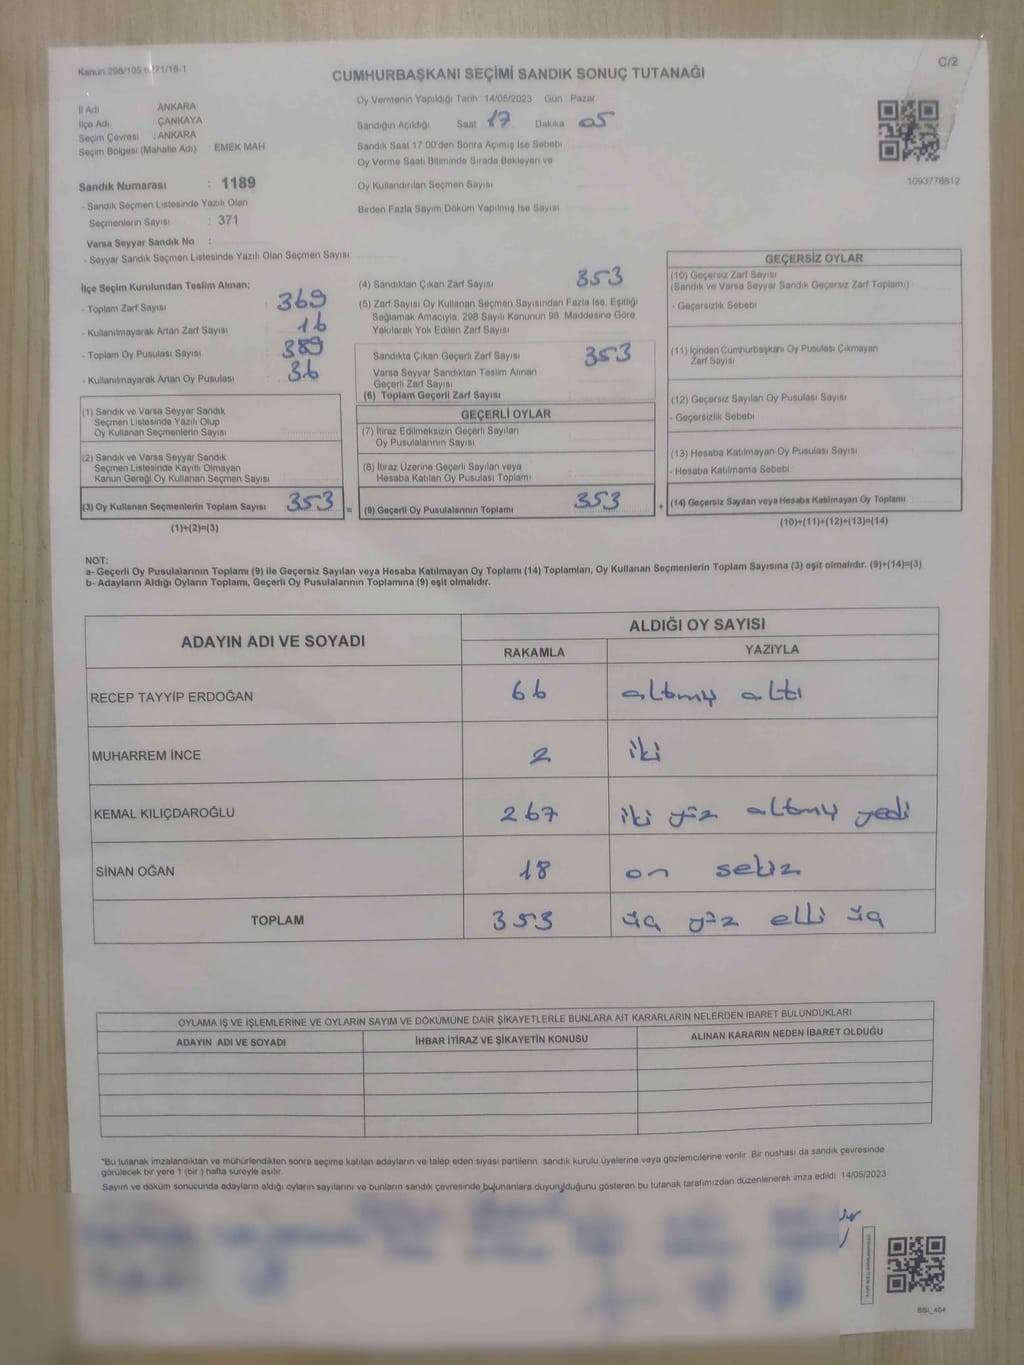 Kanun 298/105 6271/18-1
C/2
CUMHURBAŞKANI SEÇİMİ SANDIK SONUÇ TUTANAĞI
İl Adı ANKARA
İlçe Adı ÇANKAYA
Seçim Çevresi : ANKARA
Seçim Bölgesi (Mahalle Adı) EMEK MAH
Sandık Numarası : 1189
- Sandık Seçmen Listesinde Yazılı Olan
Seçmenlerin Sayısı : 371
Varsa Seyyar Sandık No :
- Seyyar Sandık Seçmen Listesinde Yazılı Olan Seçmen Sayısı:
Oy Vermenin Yapıldığı Tarih 14/05/2023 Gün Pazar
Sandığın Açıldığı Saat 17 Dakika 05
Sandık Saat 17 00'den Sonra Açımış İse Sebebi
Oy Verme Saati Bitiminde Sırada Bekleyen ve
Oy Kullandırılan Seçmen Sayısı
Birden Fazla Sayım Döküm Yapılmış İse Sayısı
1093778812
İlçe Seçim Kurulundan Teslim Alınan;
- Toplam Zarf Sayısı : 369
- Kullanılmayarak Artan Zarf Sayısı : 16
- Toplam Oy Pusulası Sayısı : 389
- Kullanılmayarak Artan Oy Pusulası : 36
(1) Sandık ve Varsa Seyyar Sandık
Seçmen Listesinde Yazılı Olup
Oy Kullanan Seçmenlerin Sayısı
(2) Sandık ve Varsa Seyyar Sandık
Seçmen Listesinde Kayıtlı Olmayan
Kanun Gereği Oy Kullanan Seçmen Sayısı
(3) Oy Kullanan Seçmenlerin Toplam Sayısı 353 =
(1)+(2)=(3)
(4) Sandıktan Çıkan Zarf Sayısı 353
(5) Zarf Sayısı Oy Kullanan Seçmen Sayısından Fazla İse, Eşitliği
Sağlamak Amacıyla, 298 Sayılı Kanunun 98. Maddesine Göre
Yakılarak Yok Edilen Zarf Sayısı
Sandıkta Çıkan Geçerli Zarf Sayısı 353
Varsa Seyyar Sandıktan Teslim Alınan
Geçerli Zarf Sayısı
(6) Toplam Geçerli Zarf Sayısı
GEÇERLİ OYLAR
(7) İtiraz Edilmeksizin Geçerli Sayılan
Oy Pusulalarının Sayısı
(8) İtiraz Üzerine Geçerli Sayılan veya
Hesaba Katılan Oy Pusulası Toplamı
(9) Geçerli Oy Pusulalarının Toplamı 353 +
GEÇERSİZ OYLAR
(10) Geçersiz Zarf Sayısı
(Sandık ve Varsa Seyyar Sandık Geçersiz Zarf Toplamı)
- Geçersizlik Sebebi
(11) İçinden Cumhurbaşkanı Oy Pusulası Çıkmayan
Zarf Sayısı
(12) Geçersiz Sayılan Oy Pusulası Sayısı
- Geçersizlik Sebebi
(13) Hesaba Katılmayan Oy Pusulası Sayısı
- Hesaba Katılmama Sebebi
(14) Geçersiz Sayılan veya Hesaba Katılmayan Oy Toplamı
(10)+(11)+(12)+(13)=(14)
NOT:
a- Geçerli Oy Pusulalarının Toplamı (9) ile Geçersiz Sayılan veya Hesaba Katılmayan Oy Toplamı (14) Toplamları, Oy Kullanan Seçmenlerin Toplam Sayısına (3) eşit olmalıdır. (9)+(14)=(3)
b- Adayların Aldığı Oyların Toplamı, Geçerli Oy Pusulalarının Toplamına (9) eşit olmalıdır.
ADAYIN ADI VE SOYADI
ALDIĞI OY SAYISI
RAKAMLA YAZIYLA
RECEP TAYYİP ERDOĞAN 66 altmış altı
MUHARREM İNCE 2 iki
KEMAL KILIÇDAROĞLU 267 iki yüz altmış yedi
SİNAN OĞAN 18 on sekiz
TOPLAM 353 üç yüz elli üç
OYLAMA İŞ VE İŞLEMLERİNE VE OYLARIN SAYIM VE DÖKÜMÜNE DAİR ŞİKAYETLERLE BUNLARA AİT KARARLARIN NELERDEN İBARET BULUNDUKLARI
ADAYIN ADI VE SOYADI İHBAR İTİRAZ VE ŞİKAYETİN KONUSU ALINAN KARARIN NEDEN İBARET OLDUĞU
*Bu tutanak imzalandıktan ve mühürlendikten sonra seçime katılan adayların ve talep eden siyasi partilerin sandık kurulu üyelerine veya gözlemcilerine verilir. Bir nüshası da sandık çevresinde
görülecek bir yere 1 (bir ) hafta süreyle asılır.
Sayım ve döküm sonucunda adayların aldığı oyların sayılarını ve bunların sandık çevresinde bulunanlara duyurulduğunu gösteren bu tutanak tarafımızdan düzenlenerek imza edildi 14/05/2023